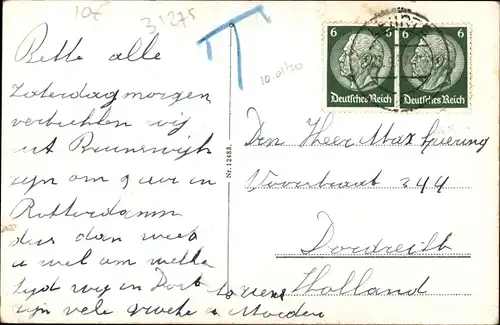 10€
3,1275
T
10.01/30
6
6
Deutsches Reich
Deutsches Reich
Beste alle
Zaterdagmorgen
vertrekken wij
uit Brunswijk
zijn om 9 uur in
Rotterdam
dus dan weet
u wel om welke
tijd wij in Dort komen
zijn vele en Moeder
Nr. 12483
Den Heer Max
Voorstraat 244
Dordrecht
Holland